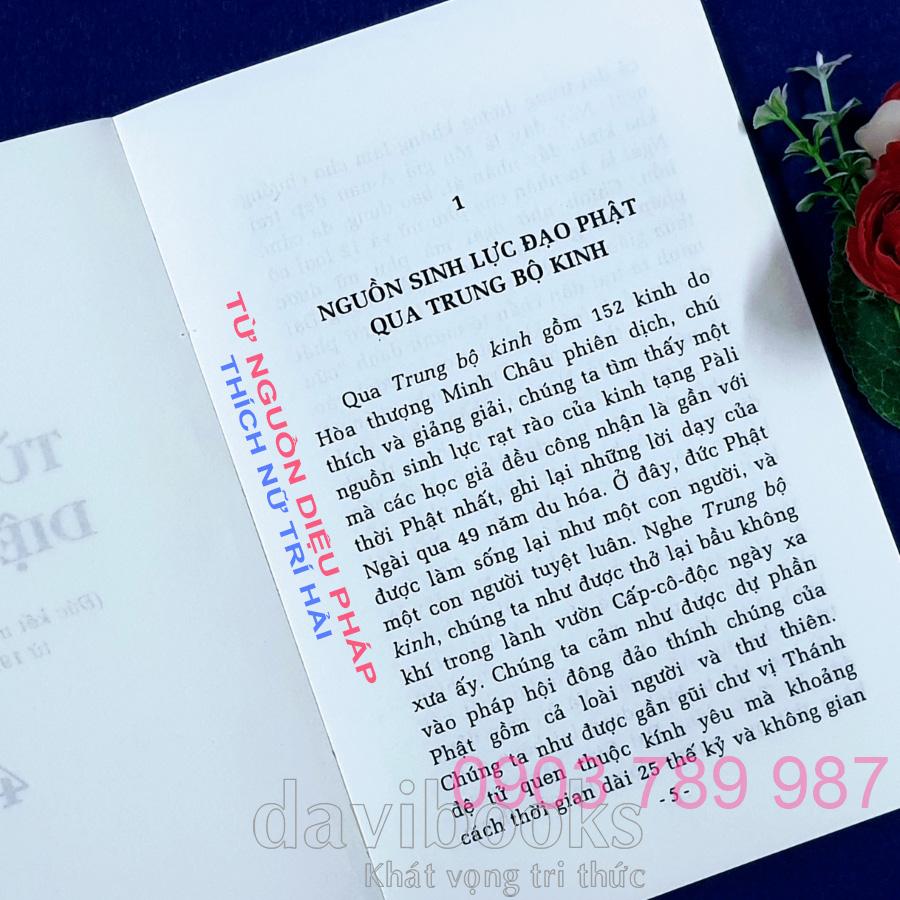 1
NGUỒN SINH LỰC ĐẠO PHẬT
QUA TRUNG BỘ KINH
Qua Trung bộ kinh gồm 152 kinh do
Hòa thượng Minh Châu phiên dịch, chú
thích và giảng giải, chúng ta tìm thấy một
nguồn sinh lực rạt rào của kinh tạng Pàli
mà các học giả đều công nhận là gần với
thời Phật nhất, ghi lại những lời dạy của
Ngài qua 49 năm du hóa. Ở đây, đức Phật
được làm sống lại như một con người, và
một con người tuyệt luân. Nghe Trung bộ
kinh, chúng ta như được thở lại bầu không
khí trong lành vườn Cấp-cô-độc ngày xa
xưa ấy. Chúng ta cảm như được dự phần
vào pháp hội đông đảo thính chúng của
Phật gồm cả loài người và thư thiên.
Chúng ta như được gần gũi chư vị Thánh
đệ tử quen thuộc kính yêu mà khoảng
cách thời gian dài 25 thế kỷ và không gian
- 5 -
TỪ NGUỒN DIỆU PHÁP
THÍCH NỮ TRÍ HẢI
0903 789 987
davibooks
Khát vọng tri thức